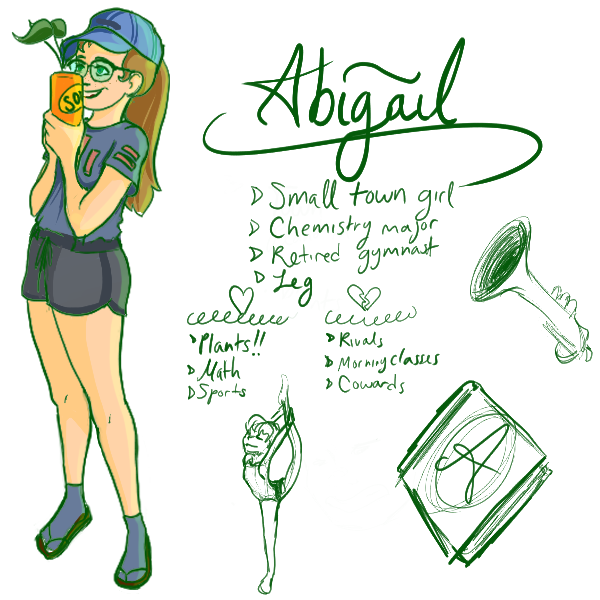 Abigail
Small town girl
Chemistry major
Retired gymnast
Leg
Plants!!
Math
Sports
Rivals
Morning classes
Cowards
SO
A